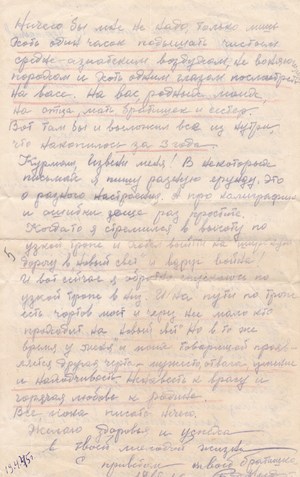 Ничего бы мне не надо, только лишь
хоть один часок подышать чистым
средне-азиатским воздухом, не вонючим
порохом и хоть одним глазом посмотреть
на вас. На вас, родные мои,
на отца, мать братишек и сестер.
Вот там бы и выложил все из нутра,
что накопилось за 3 года.
извени меня! В некоторых
письмах я пишу разную ерунду. Это
о разного настроения, а про каллиграфию
и ошибки еще раз простите.
Когда-то я стремился в высоту по
узкой тропе и хотел выйти на широкую
дорогу в новый свет и вдруг война!
И вот сейчас я обратно спускаюсь по
узкой тропе в низ. И на пути по тропе
есть чортов мост и через не мало кто
на новый свет. Но в то же
время у меня и моих товарищей
другая черта - мужество, отвага, умение
и находчивость. Ненависть к врагу и
горячая любовь к родине.
Все, пока писать нечего.
Желаю здоровья и успеха
в твоей жизни
С приветом твой братишка